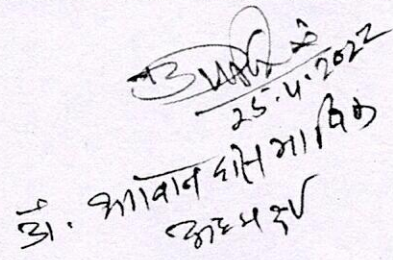 25.4.2022
डॉ. भगवान दास माणिक
अध्यक्ष